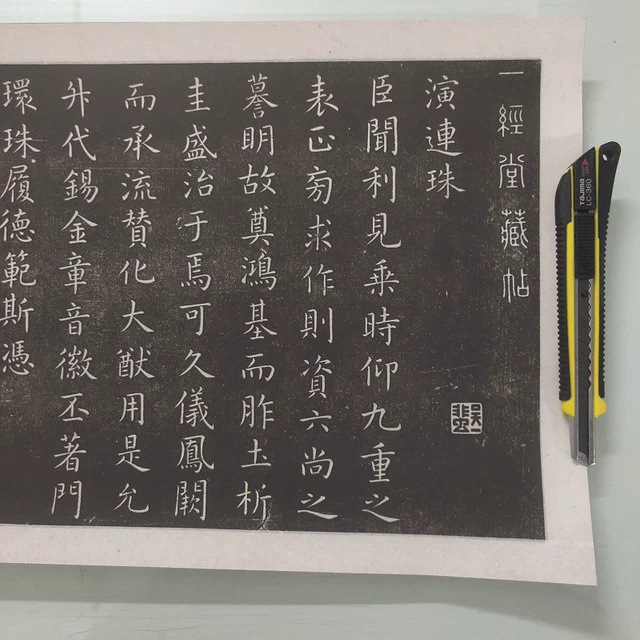 一經堂藏帖
演連珠
臣聞利見乗時仰九重之
表正旁求作則資六尚之
謩明故奠鴻基而胙土析
圭盛治于焉可久儀鳳闕
而承流贊化大猷用是允
升代錫金章音徽丕著門
環珠履德範斯憑
TaJIma
LC-360